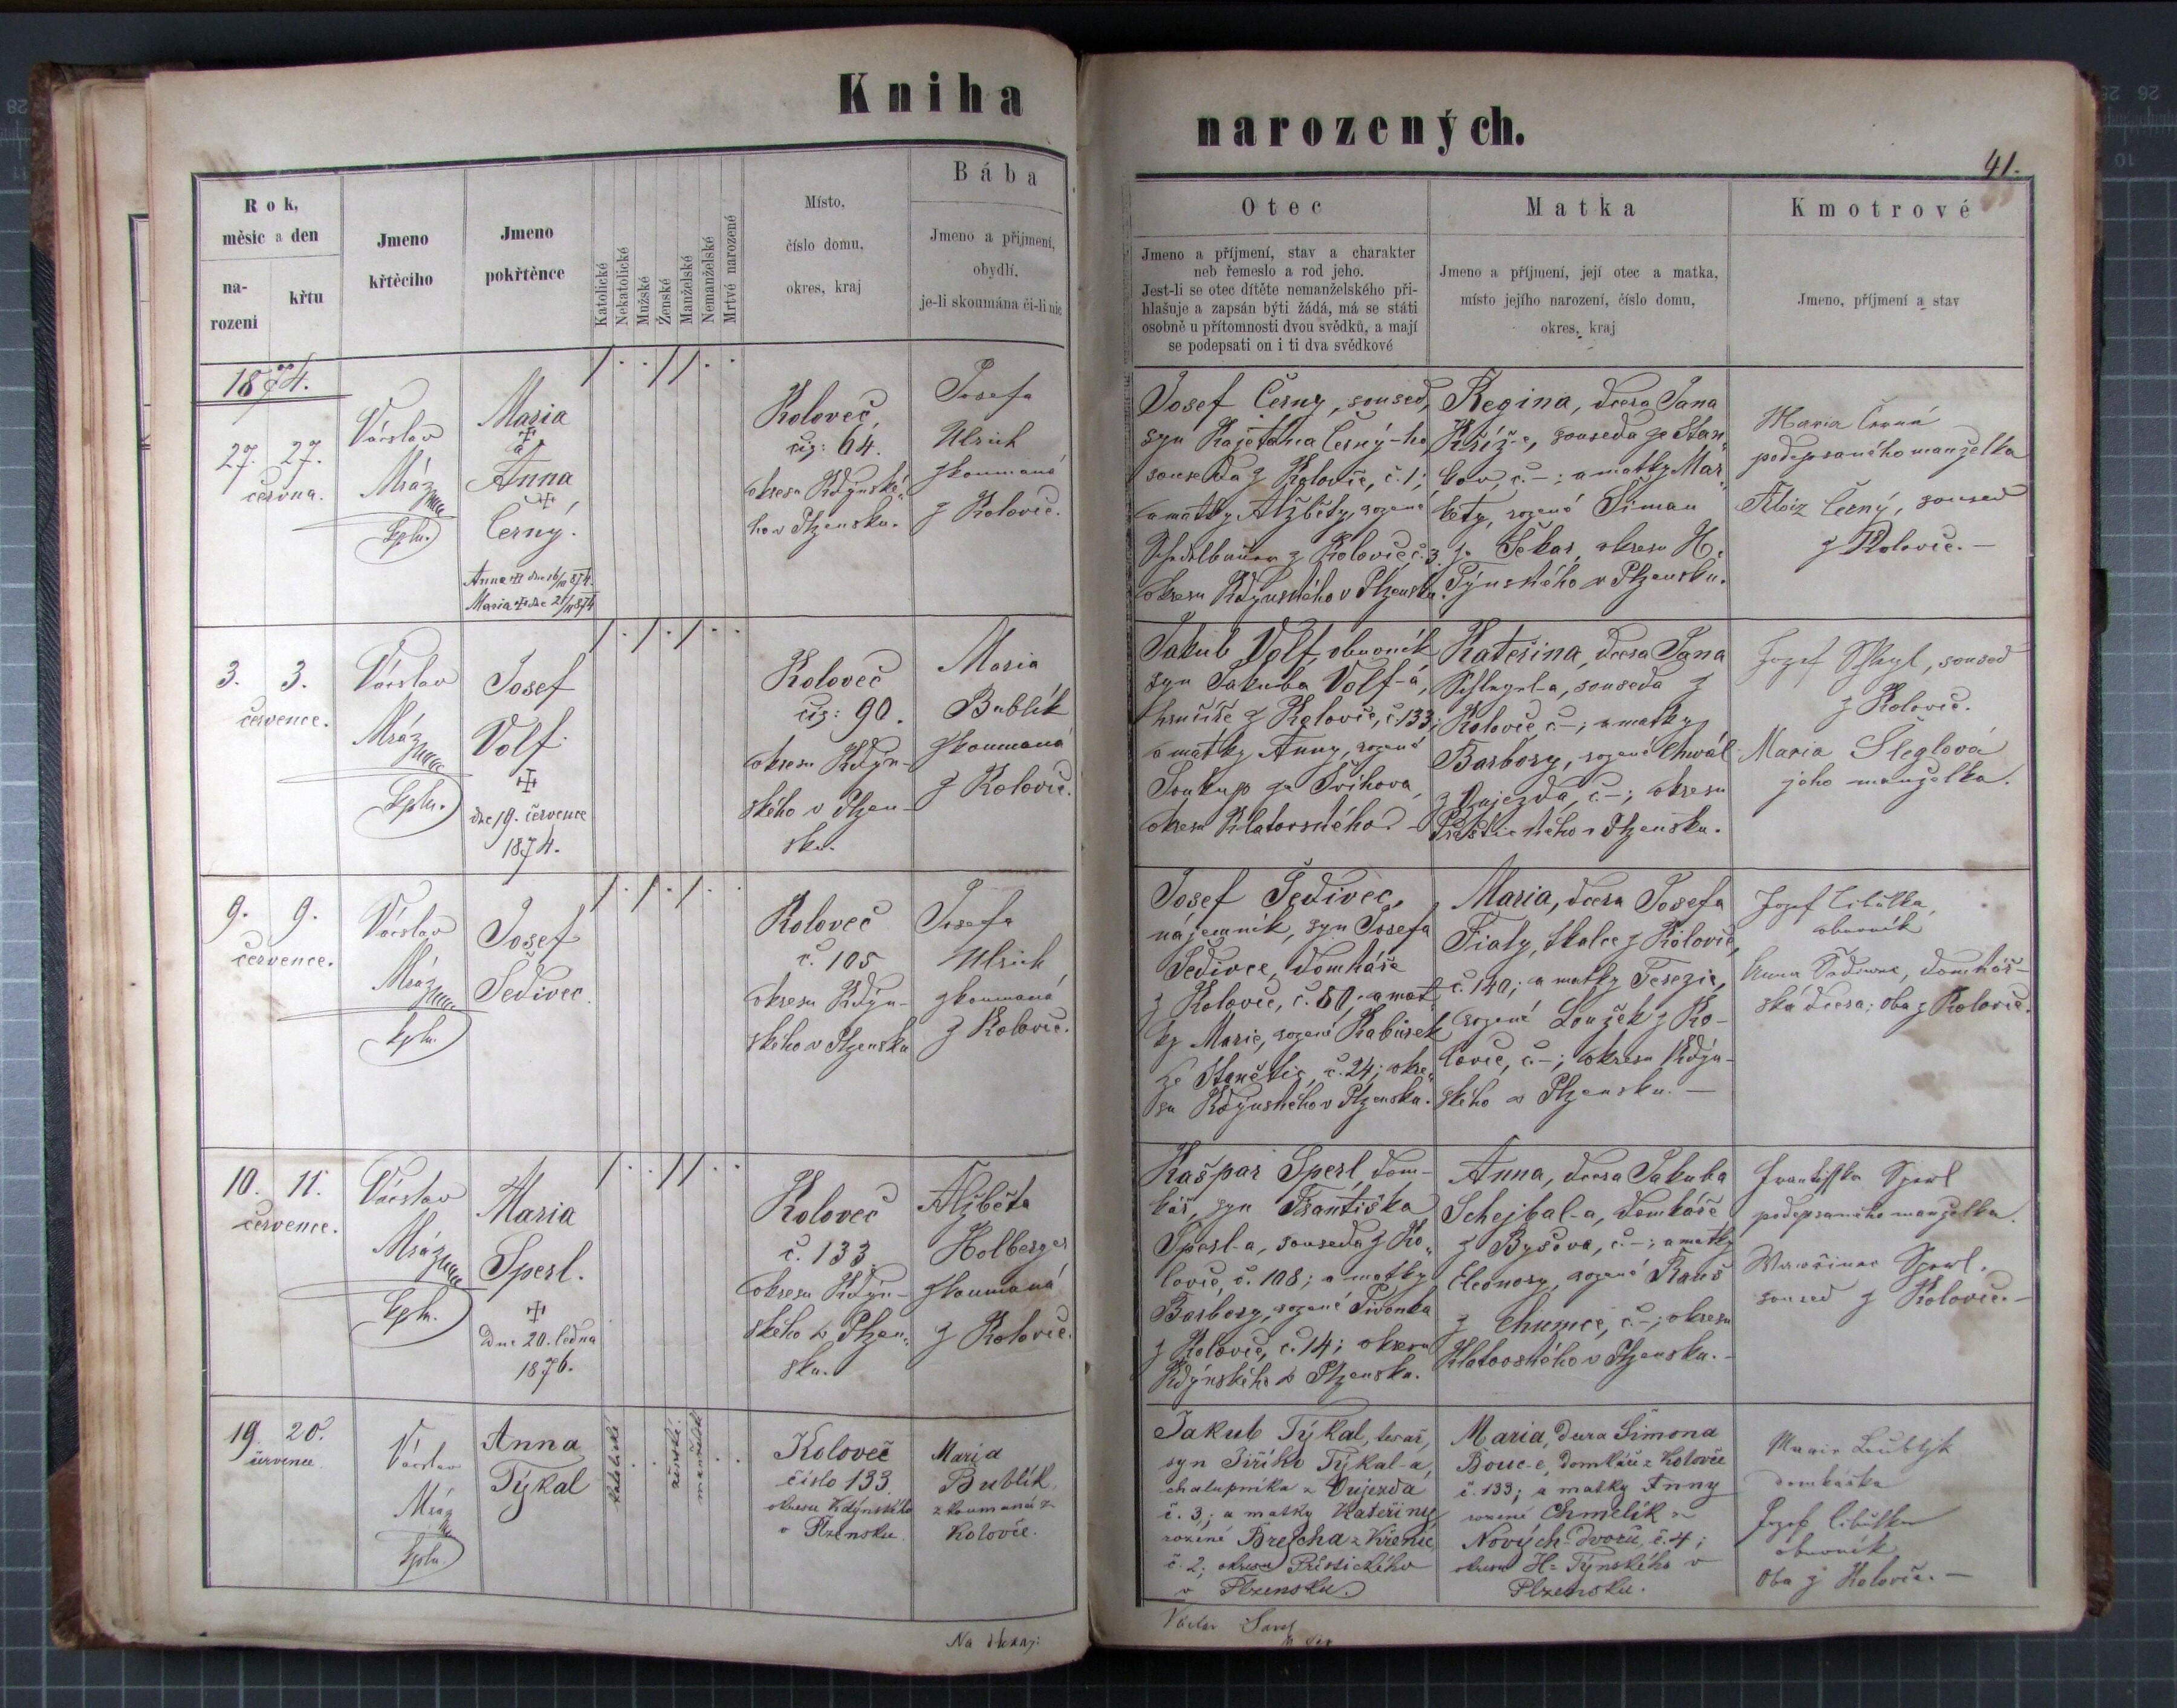 Kniha
narozených.
41.
Rok,
měsíc a den
na-
rozeni
křtu
Jmeno
křtěcího
Jmeno
pokřtěnce
Katolické
Nekatolické
Mužské
Ženské
Manželské
Nemanželské
Mrtvé narozené
Místo,
číslo domu,
okres, kraj
Bába
Jmeno a příjmení,
obydlí,
je-li skoumána či-li nic
Otec
Jmeno a příjmení, stav a charakter
neb řemeslo a rod jeho.
Jest-li se otec dítěte nemanželského při-
hlašuje a zapsán býti žádá, má se státi
osobně u přítomnosti dvou svědků, a mají
se podepsati on i ti dva svědkové
Matka
Jmeno a příjmení, její otec a matka,
místo jejího narození, číslo domu,
okres, kraj
Kmotrové
Jmeno, příjmení a stav
1874.
27. 27.
června.
Václav
Mráz
kpln.
Maria
+
a
Anna
+
Černý.
Anna + dne 16/
Maria + dne 21/
Koloveč,
čís: 64.
okresu Kdýnské-
ho v Plzensku.
Josefa
Ulrich
zkoumaná
z Kolovče.
Josef Černy, soused,
syn Kajetána Černý-ho
souseda z Kolovče, č. 1;
a matky Alžběty, rozené
z Kolovče, č. 3,
okresu Kdýnského v Plzensku.
Regina, dcera Jana
Kříž-e, souseda ze Stan-
kov, č. –; a matky Mar-
kety, rozené Šiman
ze Sekar, okresu H.
Týnského v Plzensku.
Maria Černá
podepsaného manželka
Aloiz Černý, soused
z Kolovče. —
3. 3.
července.
Václav
Mráz
kpln.
Josef
Volf
+
dne 19. července
1874.
Koloveč
čís: 90.
okresu Kdýn-
ského v Plzen-
sku.
Maria
Bublík
zkoumaná
z Kolovče.
Jakub Volf, obuvník
syn Jakuba Volf-a,
hrnčíře z Kolovče, č. 133;
a matky Anny, rozené
Soukup ze Švihova,
okresu Klatovského. –
Kateřina, dcera Jana
Schlegel-a, souseda z
Kolovče, č –; a matky
Barbory, rozené Chwál
z Oujezda, č. –; okresu
Přeštického v Plzensku.
Jozef Schlegl, soused
z Kolovče.
Maria Šleglová
jeho manželka.
9. 9.
července.
Václav
Mráz
kpln.
Josef
Šedivec.
Koloveč
č. 105
okresu Kdýn-
ského v Plzensku
Josefa
Ulrich
zkoumaná
z Kolovče.
Josef Šedivec,
nájemník, syn Josefa
Šedivce, domkáře
z Kolovče, č. 80; a mat-
ky Marie, rozené Kabůrek
ze Stanětic, č. 24; okre-
su Kdýnského v Plzensku.
Maria, dcera Josefa
Fialy, tkalce z Kolovče,
č. 140; a matky Terezie,
rozené Louzek z Ko-
lovče, č –; okresu Kdýn-
ského v Plzensku. —
Jozef Cibulka,
obuvník
Anna, domkář-
ská dcera; oba z Kolovče.
10. 11.
července.
Václav
Mráz
kpln.
Maria
Sperl.
+
dne 20. ledna
1876.
Koloveč
č. 133.
okresu Kdýn-
ského v Plzen-
sku.
Alžběta
Holberger
zkoumaná
z Kolovče.
Kašpar Sperl, dom-
kář, syn Františka
Sperl-a, souseda z Ko-
lovče, č. 108; a matky
Barbory, rozené Pivonka
z Kolovče, č. 14; okresu
Kdýnského v Plzensku.
Anna, dcera Jakuba
Schejbal-a, domkáře
z Byšova, č. –; a matky
Eleonory, rozené Rauš
z Chumce, č. –; okresu
Klatovského v Plzensku. –
Františka Sperl
podepsaného manželka.
Wawřinec Sperl.
soused z Kolovče. –
19. 20.
července
Václav
Mráz
kpln.
Anna
Týkal
katolické
ženské.
manželské
Koloveč
číslo 133.
okresu Kdýnského
v Plzensku.
Maria
Bublík,
zkoumaná z
Kolovče.
Jakub Týkal, tesař,
syn Jiříka Týkal-a,
chalupníka z Oujezda
č. 3; a matky Kateřiny,
rozené Brejcha z Křenic
č. 2; okresu Přestického
v Plzensku.
Maria, dcera Šimona
Bouc-e, domkáře z Kolovče
č. 133; a matky Anny
rozené Chmelík z
Nových-Dvorů, č. 4;
okresu H=Týnského v
Plzensku.
Marie Bublik
domkářka
Jozef Cibulka
obuvník
Oba z Kolovče. —
Václav